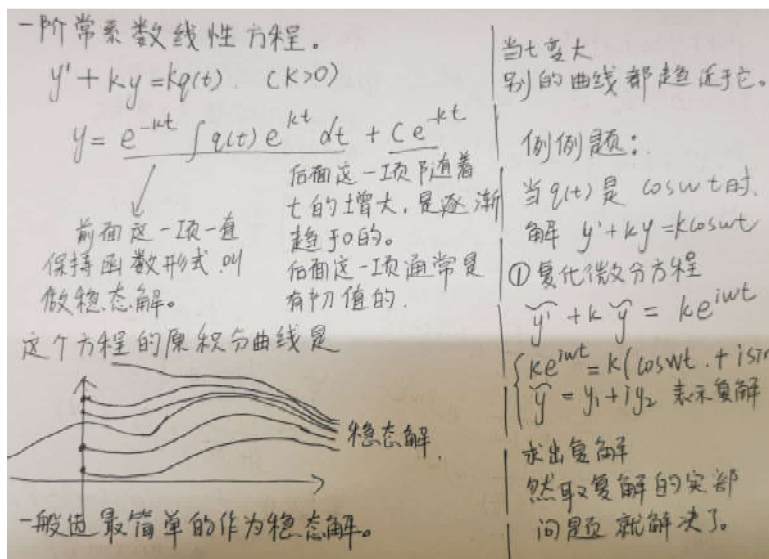 一阶常系数线性方程。
y' + ky = kq(t). (k>0)
y = e^{-kt} ∫ q(t) e^{kt} dt + C e^{-kt}
前面这一项一直
保持函数形式.叫
做稳态解。
后面这一项随着
t的增大,是逐渐
趋于0的。
后面这一项通常是
有初值的.
这个方程的原积分曲线是
稳态解.
一般选最简单的作为稳态解。
当t变大
别的曲线都趋近于它。
例例题:
当q(t)是 coswt时.
解 y'+ky=kcoswt
①复化微分方程
ỹ' + kỹ = ke^{iwt}
ke^{iwt} = k(coswt. + isin
ỹ = y₁+iy₂ 表示复解
求出复解
然取复解的实部
问题就解决了。